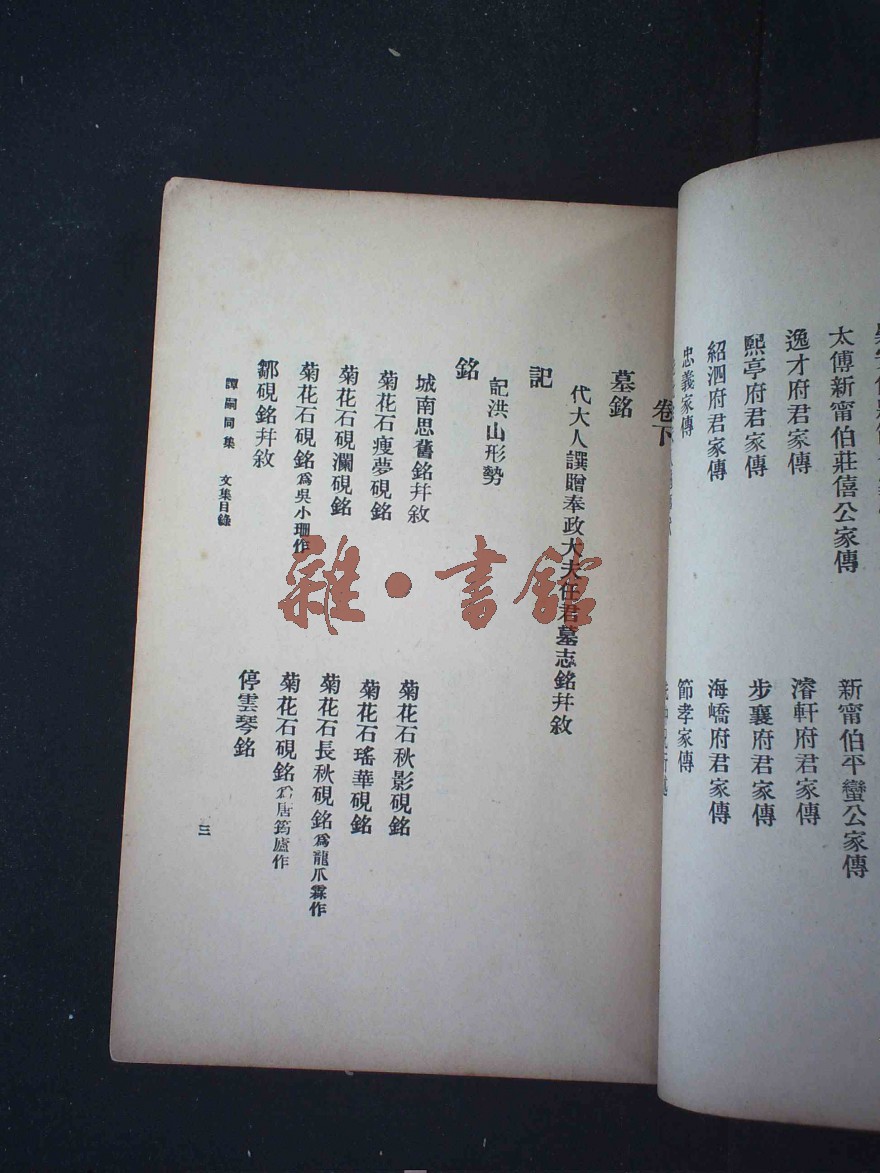 太傅新甯伯莊僖公家傳　新甯伯平蠻公家傳
逸才府君家傳　濬軒府君家傳
熙亭府君家傳　步襄府君家傳
紹泗府君家傳　海嶠府君家傳
忠義家傳　節孝家傳
卷下
墓銘
代大人譔贈奉政大夫任君墓志銘幷敘
記
記洪山形勢
銘
城南思舊銘幷敘　菊花石秋影硯銘
菊花石瘦夢硯銘　菊花石瑤華硯銘
菊花石硯瀾硯銘　菊花石長秋硯銘爲龍爪霖作
菊花石硯銘爲吳小珊作　菊花石硯銘爲唐筠廬作
鄒硯銘幷敘　停雲琴銘
譚嗣同集　文集目錄　三
雜·書館